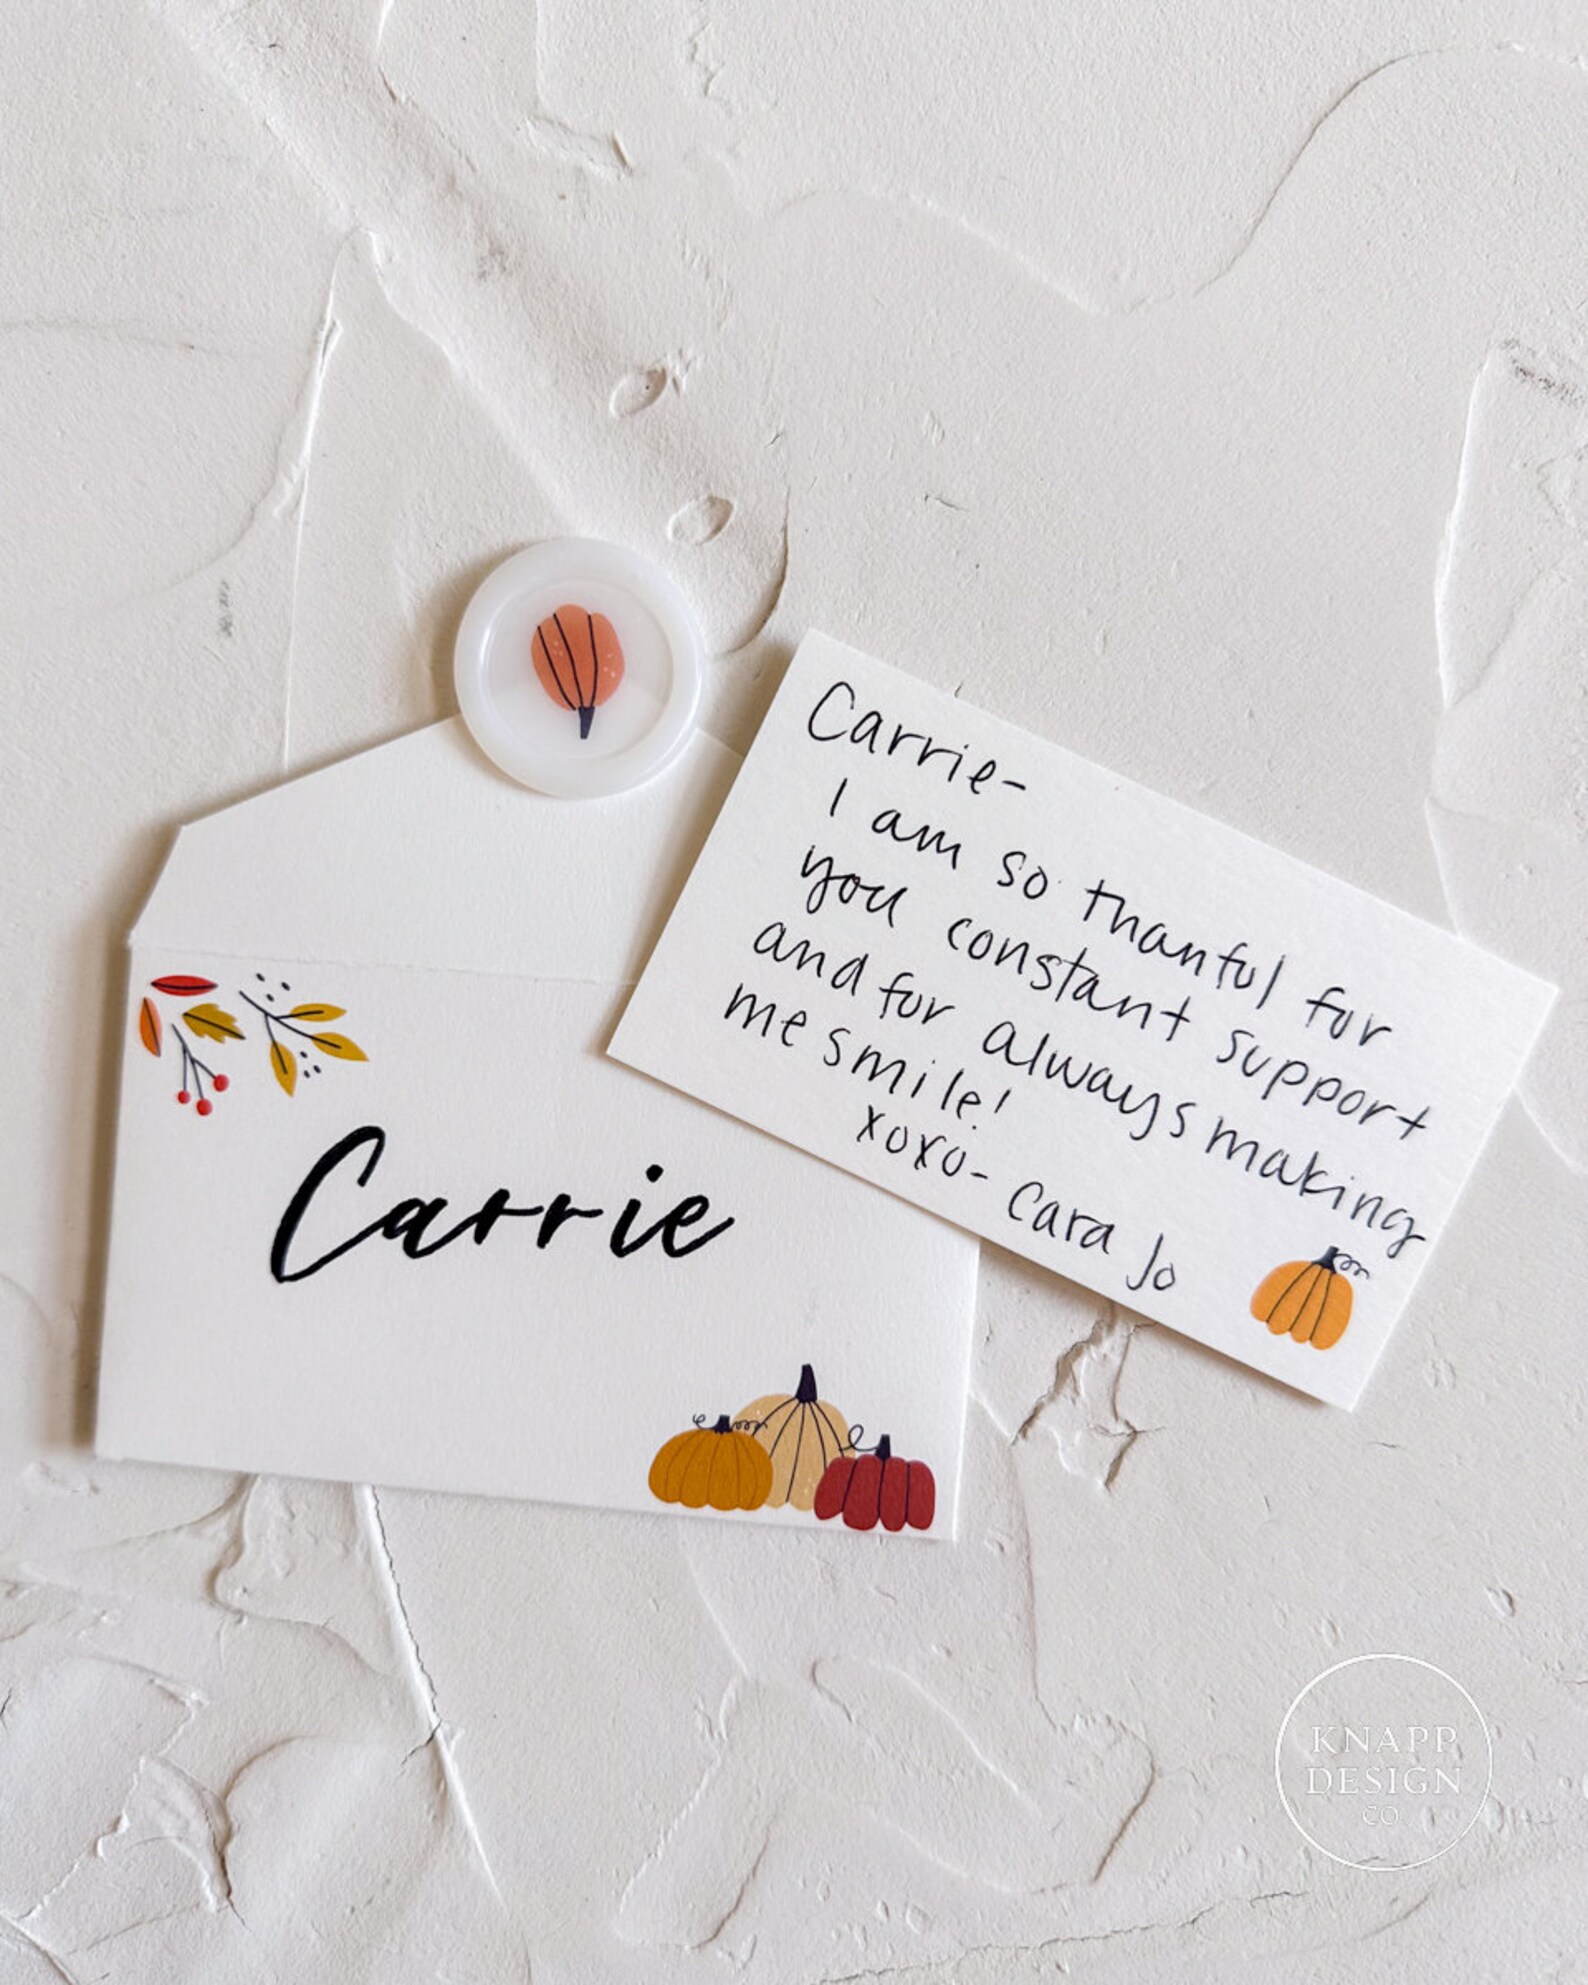 Carrie-
I am so thanful for
you constant support
and for always making
me smile!
xoxo- Cara Jo
Carrie
KNAPP
DESIGN
CO